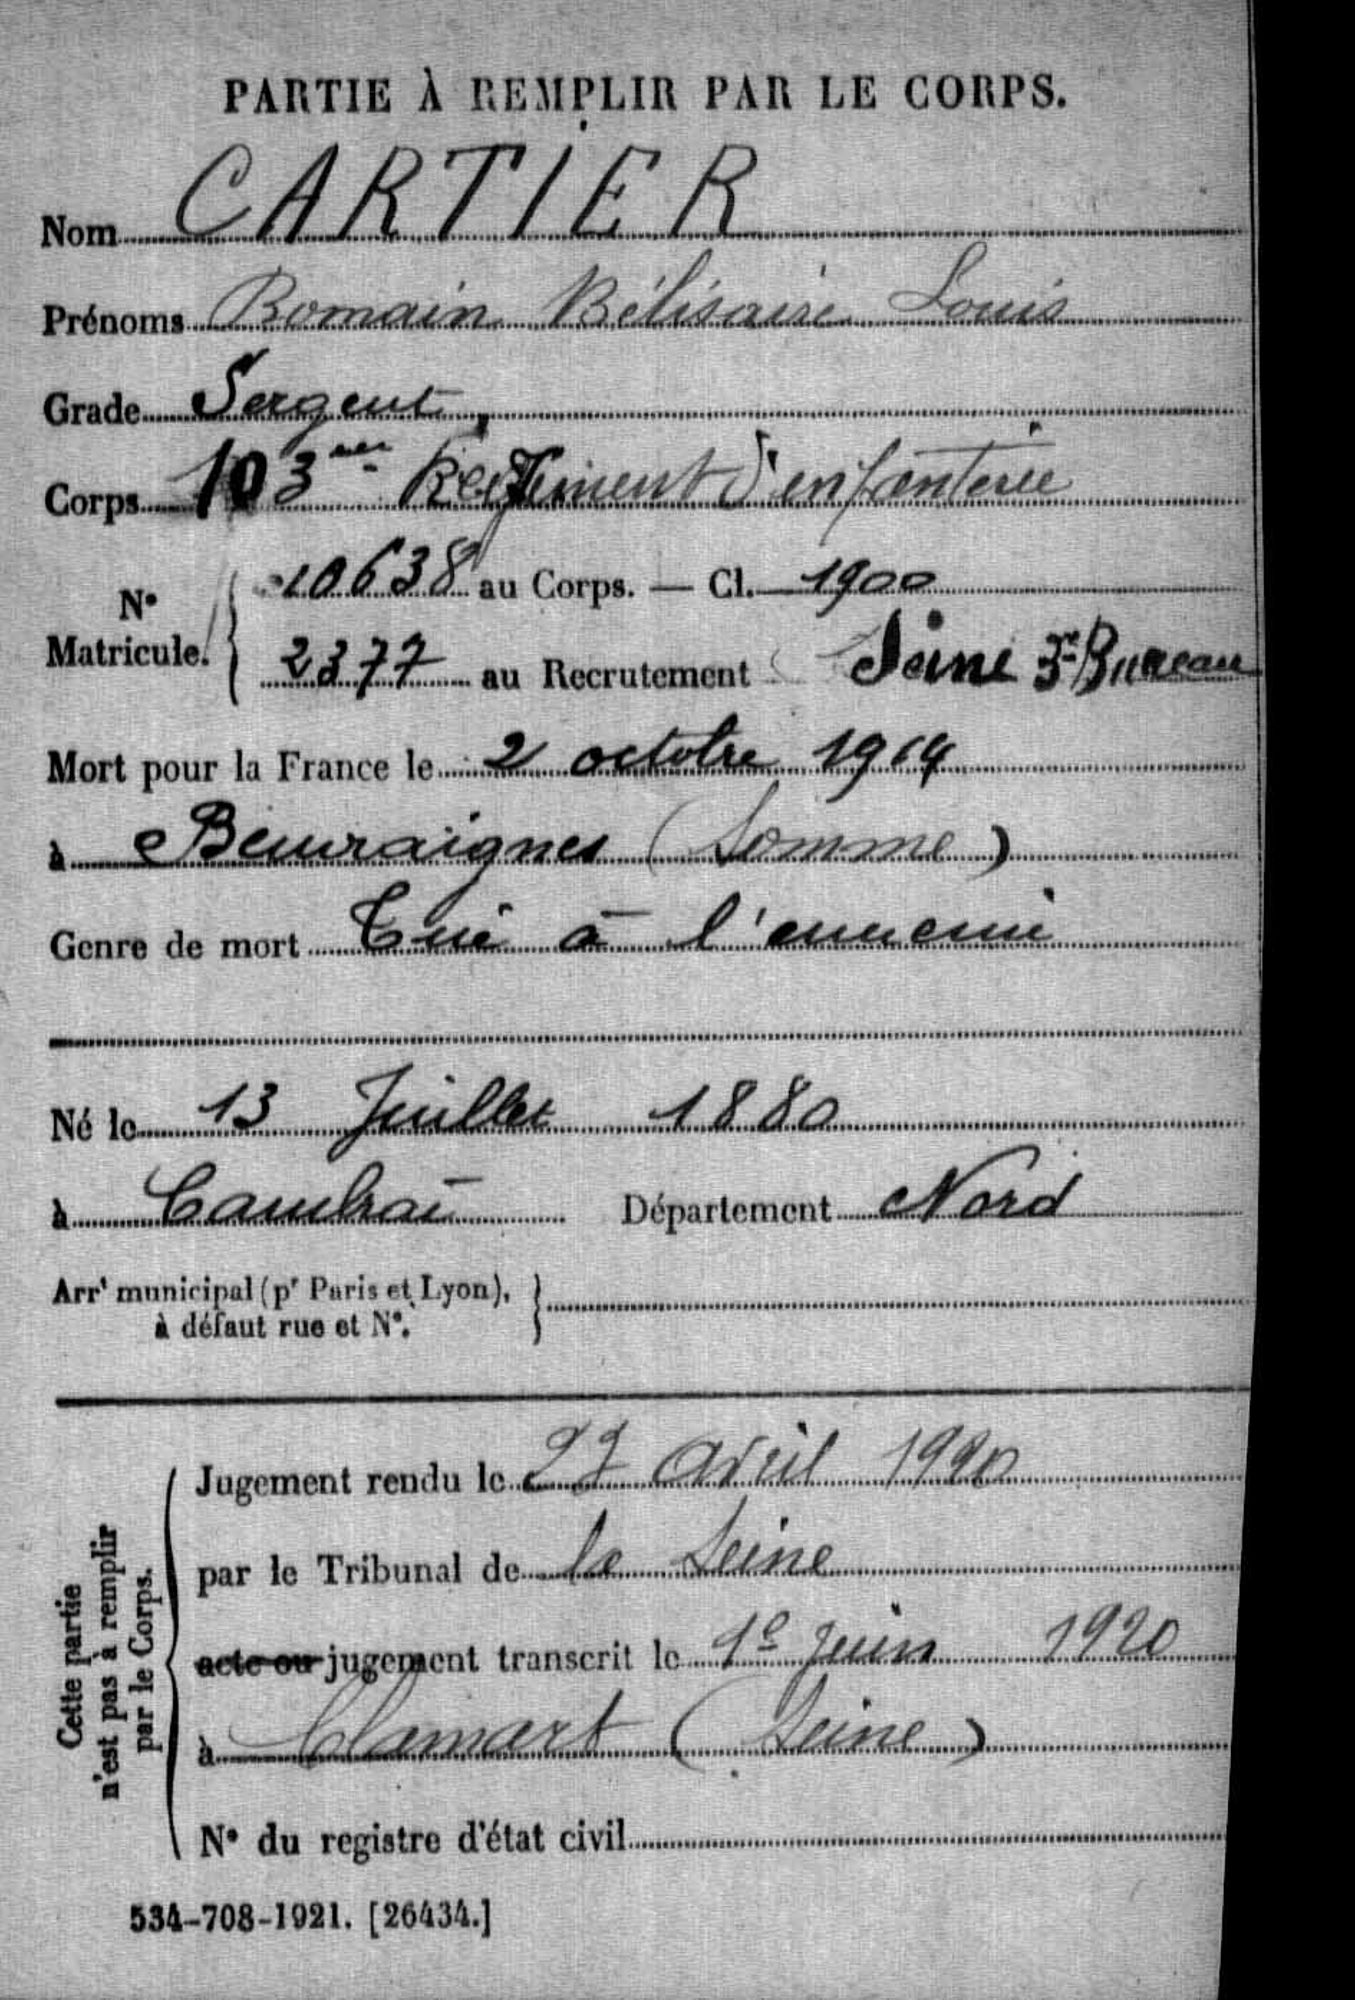 PARTIE À REMPLIR PAR LE CORPS.
Nom CARTIER
Prénoms Romain Bélisaire Louis
Grade Sergent
Corps 103me Regiment d'enfanterie
N° Matricule. 10638 au Corps. — Cl. 1900
2377 au Recrutement Seine 3e Bureau
Mort pour la France le 2 octobre 1914
à Beuvraignes (Somme)
Genre de mort Tué à l'ennemi
Né le 13 Juillet 1880
à Cambrai Département Nord
Arrt municipal (pr Paris et Lyon),
à défaut rue et N°.
Cette partie
n'est pas à remplir
par le Corps.
Jugement rendu le 27 avril 1920
par le Tribunal de la Seine
acte ou jugement transcrit le 1e juin 1920
à Clamart (Seine)
N° du registre d'état civil
534-708-1921. [26434.]